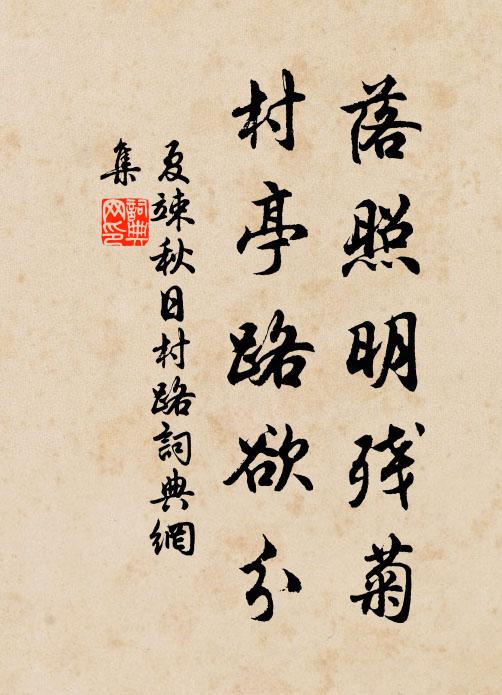 落照明残菊
村亭路欲分
夏竦秋日村路詞典網
集
詞典
网印